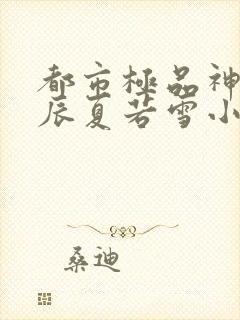 都市極品神
辰夏若雪小
桑迪